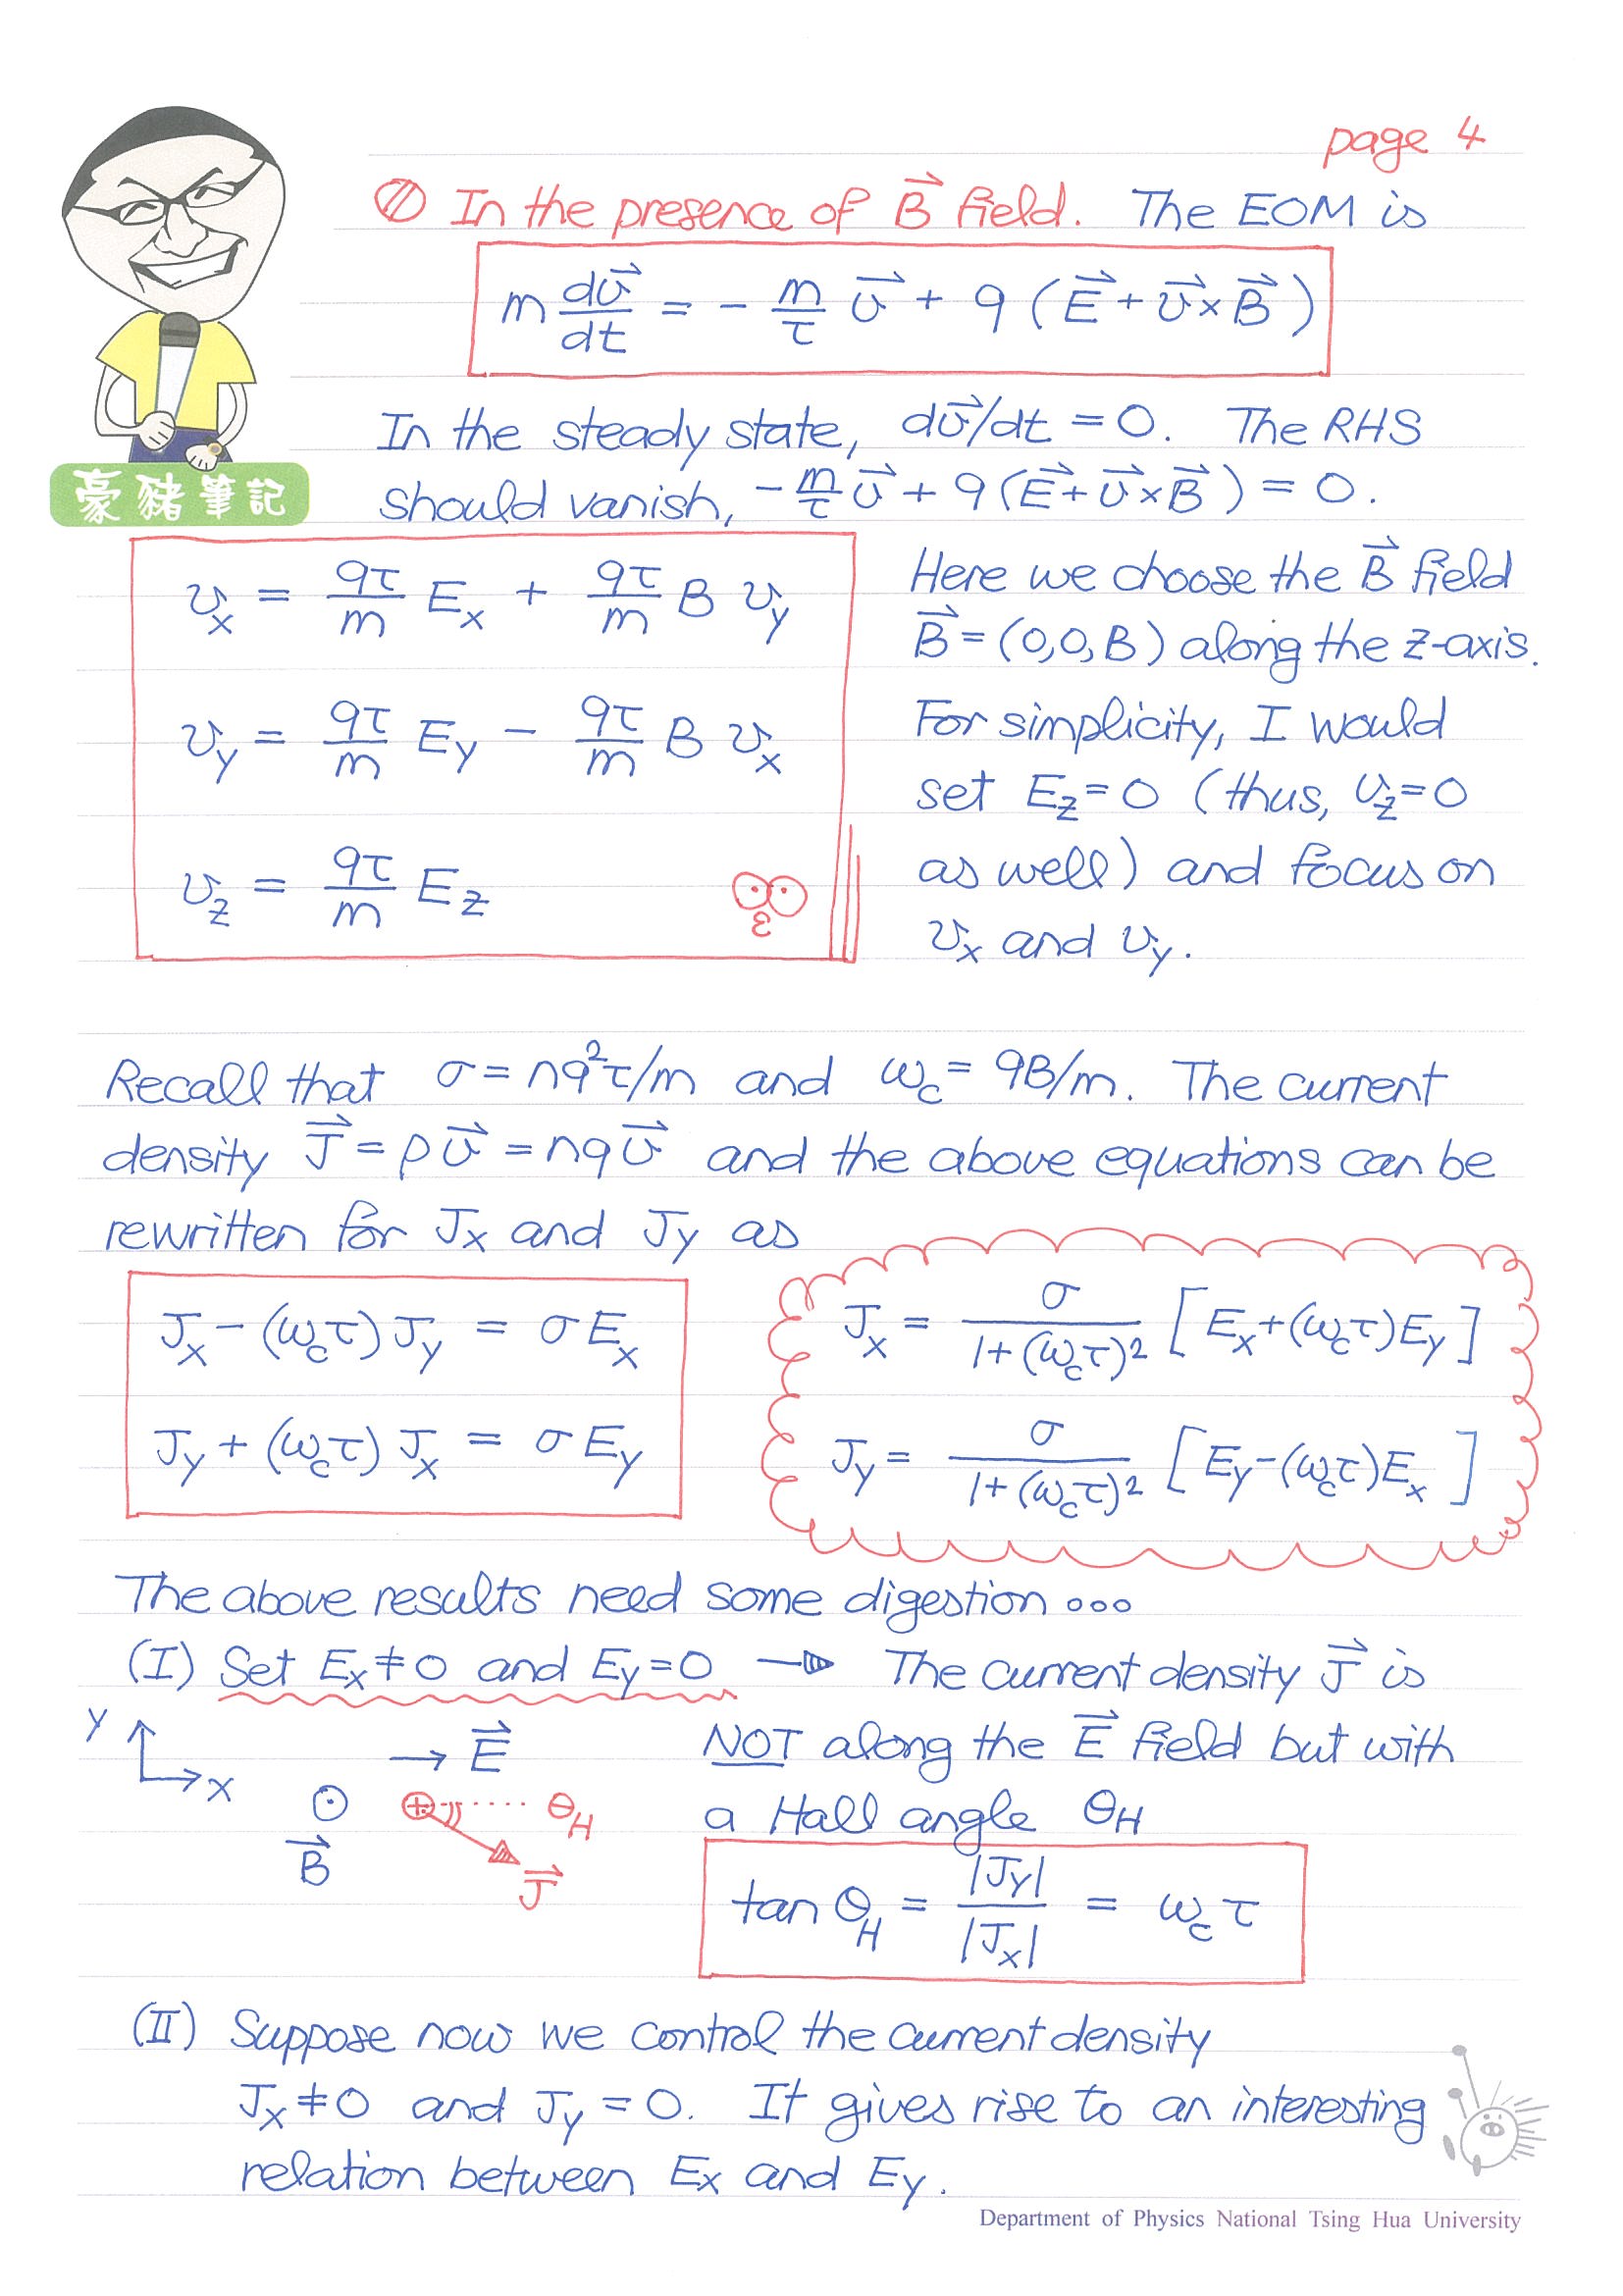 page 4
In the presence of B⃗ field. The EOM is
m dv⃗/dt = - m/τ v⃗ + q (E⃗ + v⃗ × B⃗)
In the steady state, dv⃗/dt = 0. The RHS
should vanish, - m/τ v⃗ + q (E⃗ + v⃗ × B⃗) = 0.
豪豬筆記
v_x = qτ/m E_x + qτ/m B v_y
v_y = qτ/m E_y - qτ/m B v_x
v_z = qτ/m E_z
Here we choose the B⃗ field
B⃗ = (0,0,B) along the z-axis.
For simplicity, I would
set E_z = 0 (thus, v_z = 0
as well) and focus on
v_x and v_y.
Recall that σ = nq²τ/m and ω_c = qB/m. The current
density J⃗ = ρv⃗ = nqv⃗ and the above equations can be
rewritten for J_x and J_y as
J_x - (ω_cτ) J_y = σE_x
J_y + (ω_cτ) J_x = σE_y
J_x = σ/1+(ω_cτ)² [E_x+(ω_cτ)E_y]
J_y = σ/1+(ω_cτ)² [E_y-(ω_cτ)E_x]
The above results need some digestion ...
(I) Set E_x ≠ 0 and E_y = 0 → The current density J⃗ is
NOT along the E⃗ field but with
a Hall angle θ_H
y
x
→ E⃗
B⃗
θ_H
J⃗
tan θ_H = |J_y|/|J_x| = ω_c τ
(II) Suppose now we control the current density
J_x ≠ 0 and J_y = 0. It gives rise to an interesting
relation between E_x and E_y.
Department of Physics National Tsing Hua University